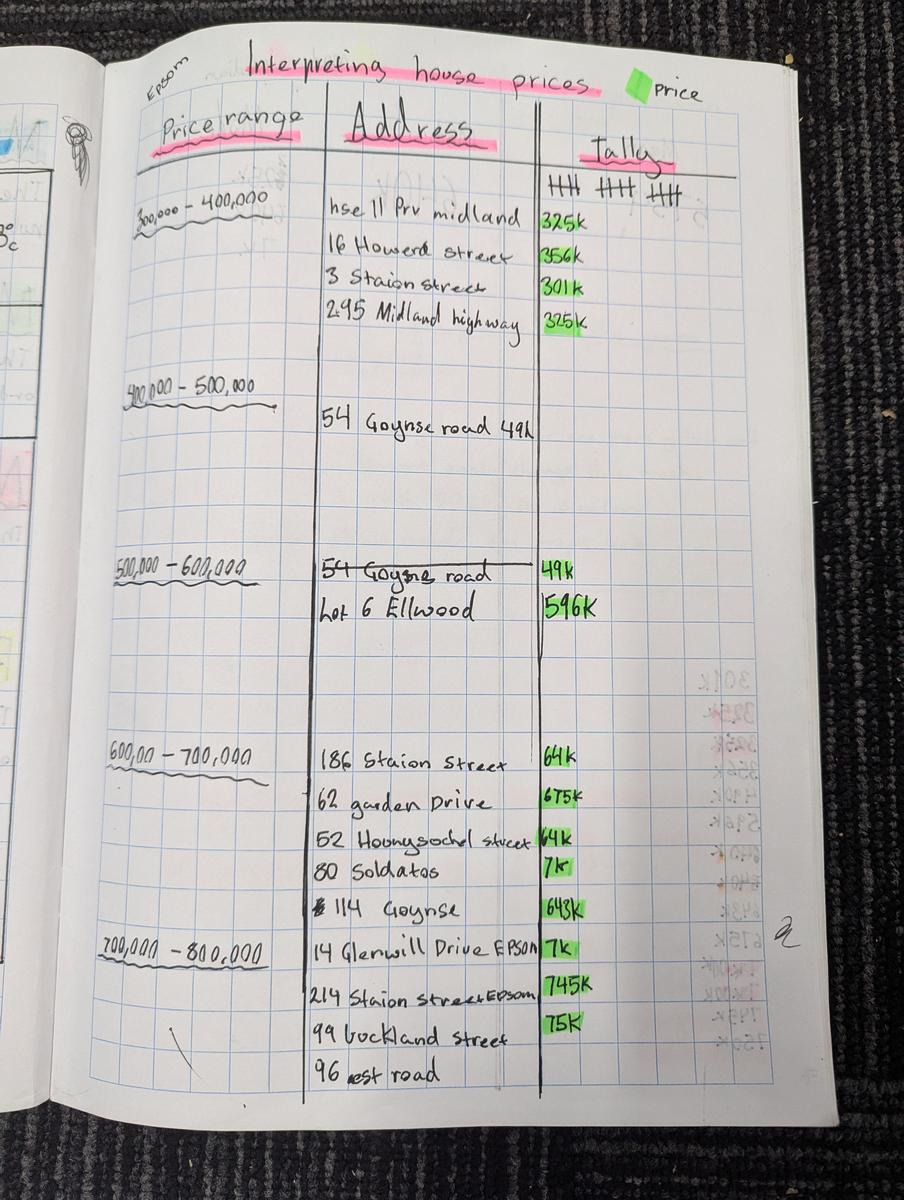 Epsom
Interpreting house prices
Price
Price range
Address
Tally
300,000 - 400,000
hse 11 Prv midland 325k
16 Howerd street 356k
3 Staion street 301k
295 Midland highway 325k
400,000 - 500,000
54 Goynse road 49k
500,000 - 600,000
54 Goyne road 49k
Lot 6 Ellwood 596k
600,00 - 700,000
186 Staion Street 64k
62 garden Drive 675k
52 Hounysochel street 64k
80 Soldatos 7k
114 Goynse 643k
700,000 - 800,000
14 Glenwill Drive EPSOM 7k
214 Staion street Epsom 745k
99 buckland street 75k
96 est road